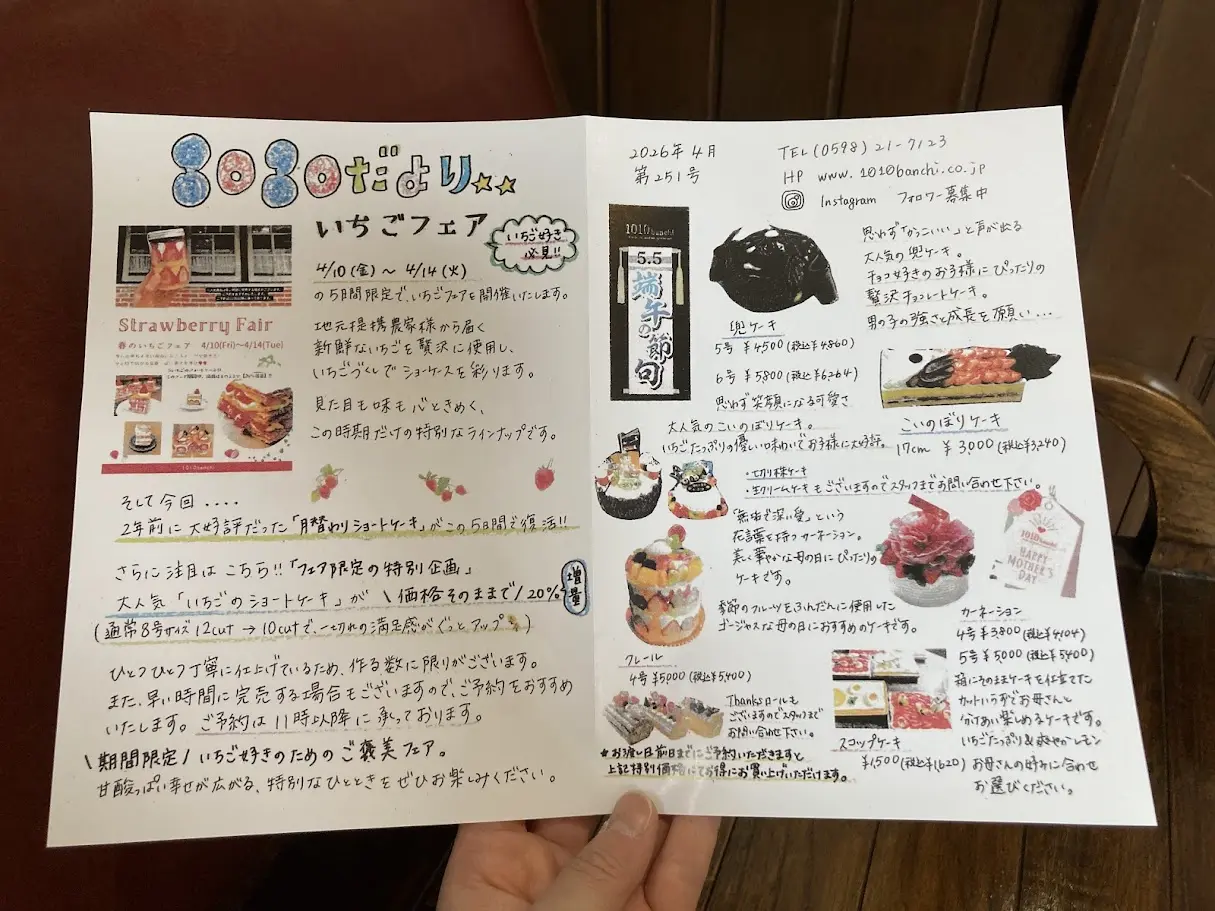 1010だより
いちごフェア
いちご好き
必見!!
4/10(金)~4/14(火)
の5日間限定で、いちごフェアを開催いたします。
地元提携農家様から届く
新鮮ないちごを贅沢に使用し、
いちごづくしでショーケースを彩ります。
見た目も味も心ときめく、
この時期だけの特別なラインナップです。
Strawberry Fair
春のいちごフェア 4/10(Fri)~4/14(Tue)
1010banchi
そして今回....
2年前に大好評だった「月替わりショートケーキ」がこの5日間で復活!!
さらに注目はこちら!!「フェア限定の特別企画」
大人気「いちごのショートケーキ」が \価格そのまま/20%増量
(通常8号サイズ12cut→10cutで、一切れの満足感がぐっとアップ)
ひとつひとつ丁寧に仕上げているため、作る数に限りがございます。
また、早い時間に完売する場合もございますので、ご予約をおすすめ
いたします。ご予約は11時以降に承っております。
\期間限定/いちご好きのためのご褒美フェア。
甘酸っぱい幸せが広がる、特別なひとときをぜひお楽しみください。
2026年4月
第251号
TEL(0598)21-7123
HP www.1010banchi.co.jp
Instagram フォロワー募集中
1010banchi
5.5
端午の節句
思わず「かっこいい」と声が出る
大人気の兜ケーキ。
チョコ好きのお子様にぴったりの
贅沢チョコレートケーキ。
男の子の強さと成長を願い...
兜ケーキ
5号¥4,500(税込¥4,860)
6号¥5,800(税込¥6,264)
思わず笑顔になる可愛さ
大人気のこいのぼりケーキ。
いちごたっぷりの優しい味わいでお子様に大好評。
こいのぼりケーキ
17cm ¥3,000(税込¥3,240)
・切り株ケーキ
・生クリームケーキもございますのでスタッフまでお問い合わせ下さい。
「無垢で深い愛」という
花言葉を持つカーネーション。
美しく華やかな母の日にぴったりの
ケーキです。
1010banchi
HAPPY
MOTHER'S
DAY
季節のフルーツをふんだんに使用した
ゴージャスな母の日におすすめのケーキです。
カーネーション
4号¥3,800(税込¥4,104)
5号¥5,000(税込¥5,400)
クレール
4号¥5,000(税込¥5,400)
Thanksロールも
ございますのでスタッフまで
お問い合わせ下さい。
箱にそのままケーキを仕立てた
カットいらずでお母さんと
分けあい楽しめるケーキです。
いちごたっぷり&爽やかレモン
お母さんの好みに合わせ
お選びください。
スコップケーキ
¥1,500(税込¥1,620)
★お渡し日前日までにご予約いただきますと
上記特別価格にてお得にお買上げいただけます。